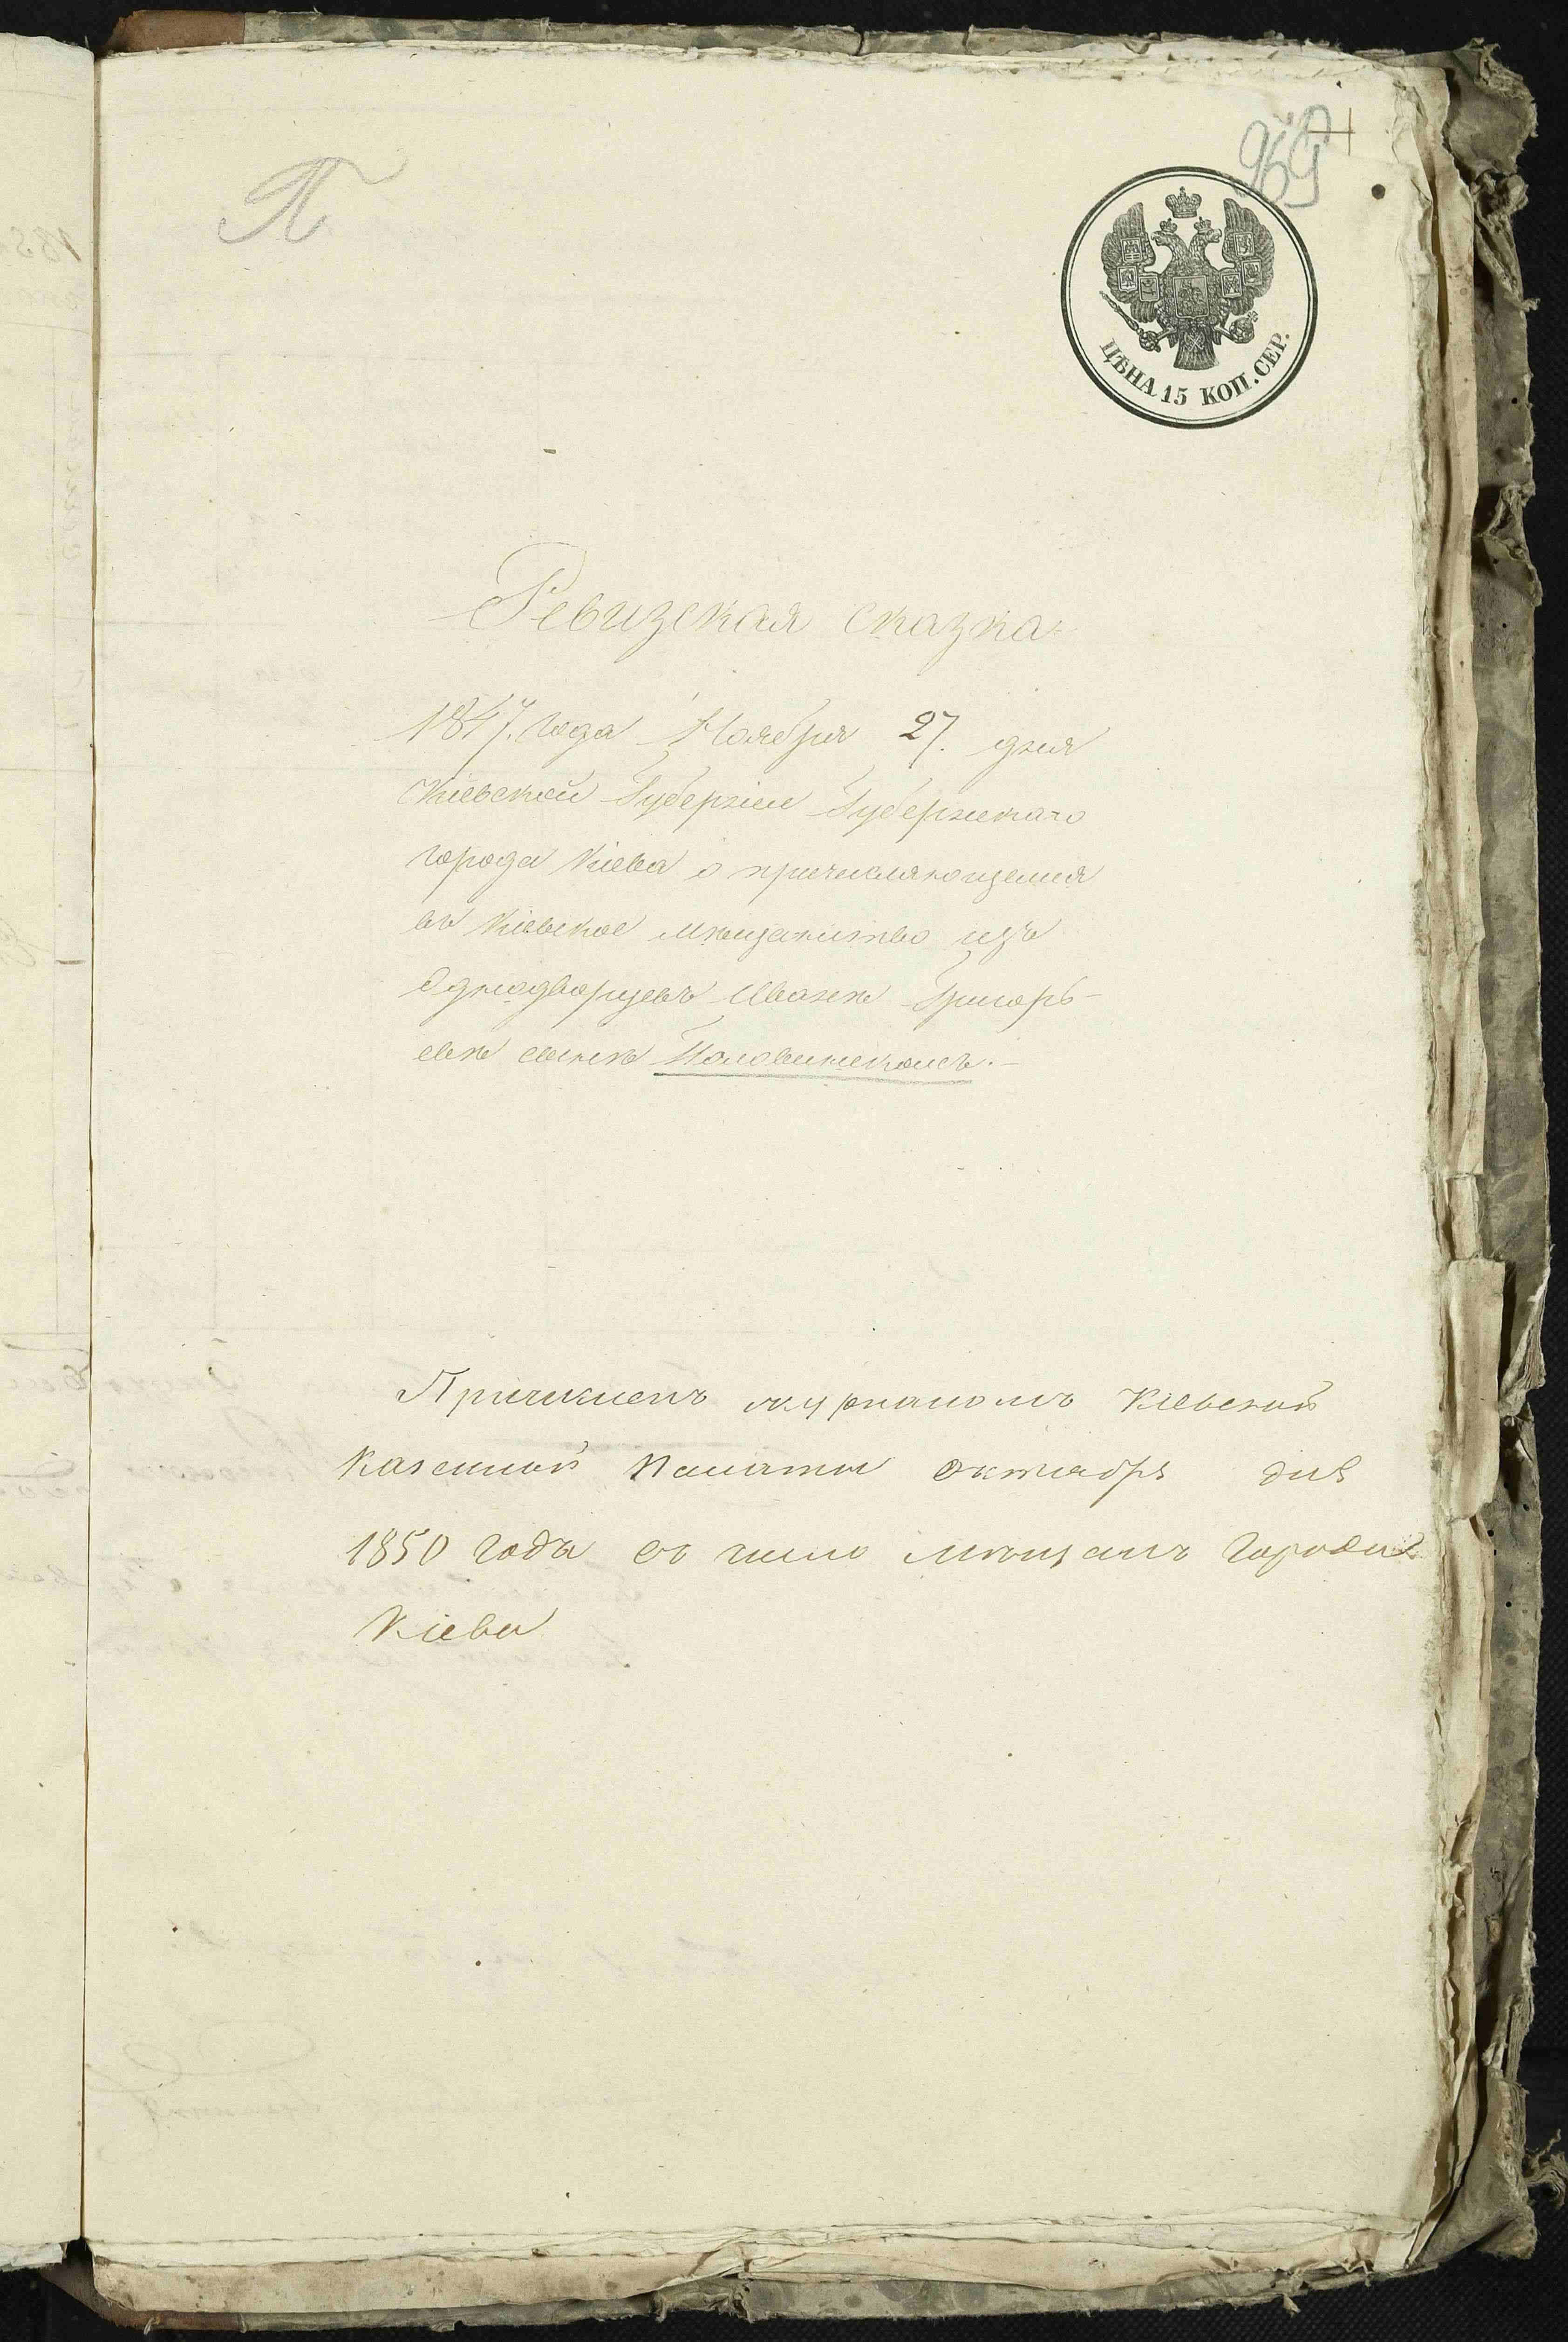 П
969
ЦѢНА 15 КОП. СЕР.
Ревизская сказка
1847. года Ноября 27. дня
Кіевской Губерніи Губернскаго
города Кіева о причисляющемся
въ Кіевское мѣщанство изъ
Однодворцевъ Иванѣ Григорь-
евѣ сынѣ Половинскомъ.
Причисленъ журналомъ Кіевской
Казенной Палаты октября дня
1850 года въ число мѣщанъ города
Кіева